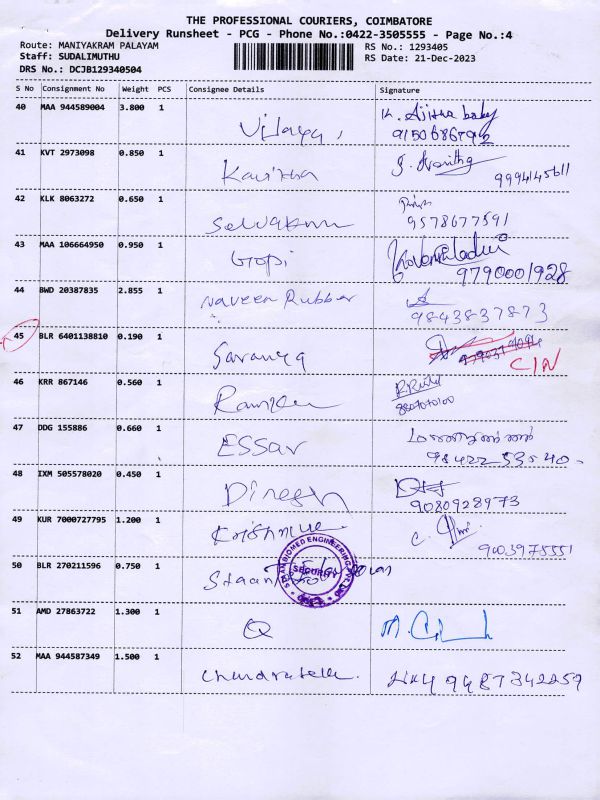 THE PROFESSIONAL COURIERS, COIMBATORE
Delivery Runsheet - PCG - Phone No.:0422-3505555 - Page No.:4
Route: MANIYAKRAM PALAYAM RS No.: 1293405
Staff: SUDALIMUTHU RS Date: 21-Dec-2023
DRS No.: DCJB129340504
S No Consignment No Weight PCS Consignee Details Signature
40 MAA 944589004 3.800 1 K. Ajitha baby
Vijaya,
41 KVT 2973098 0.850 1
Kavitha 9994145611
42 KLK 8063272 0.650 1
Selvakum 9578677591
43 MAA 106664950 0.950 1
Gopi 9790001928
44 BWD 20387835 2.855 1 Naveen Rubber
9843837873
45 BLR 6401138810 0.190 1
Saranya CIN
46 KRR 867146 0.560 1
47 DDG 155886 0.660 1
ESSar
48 IXM 505578020 0.450 1
Dinesh 9080928973
49 KUR 7000727795 1.200 1
9003975551
50 BLR 270211596 0.750 1
SECURITY
51 AMD 27863722 1.300 1
52 MAA 944587349 1.500 1
9487342259